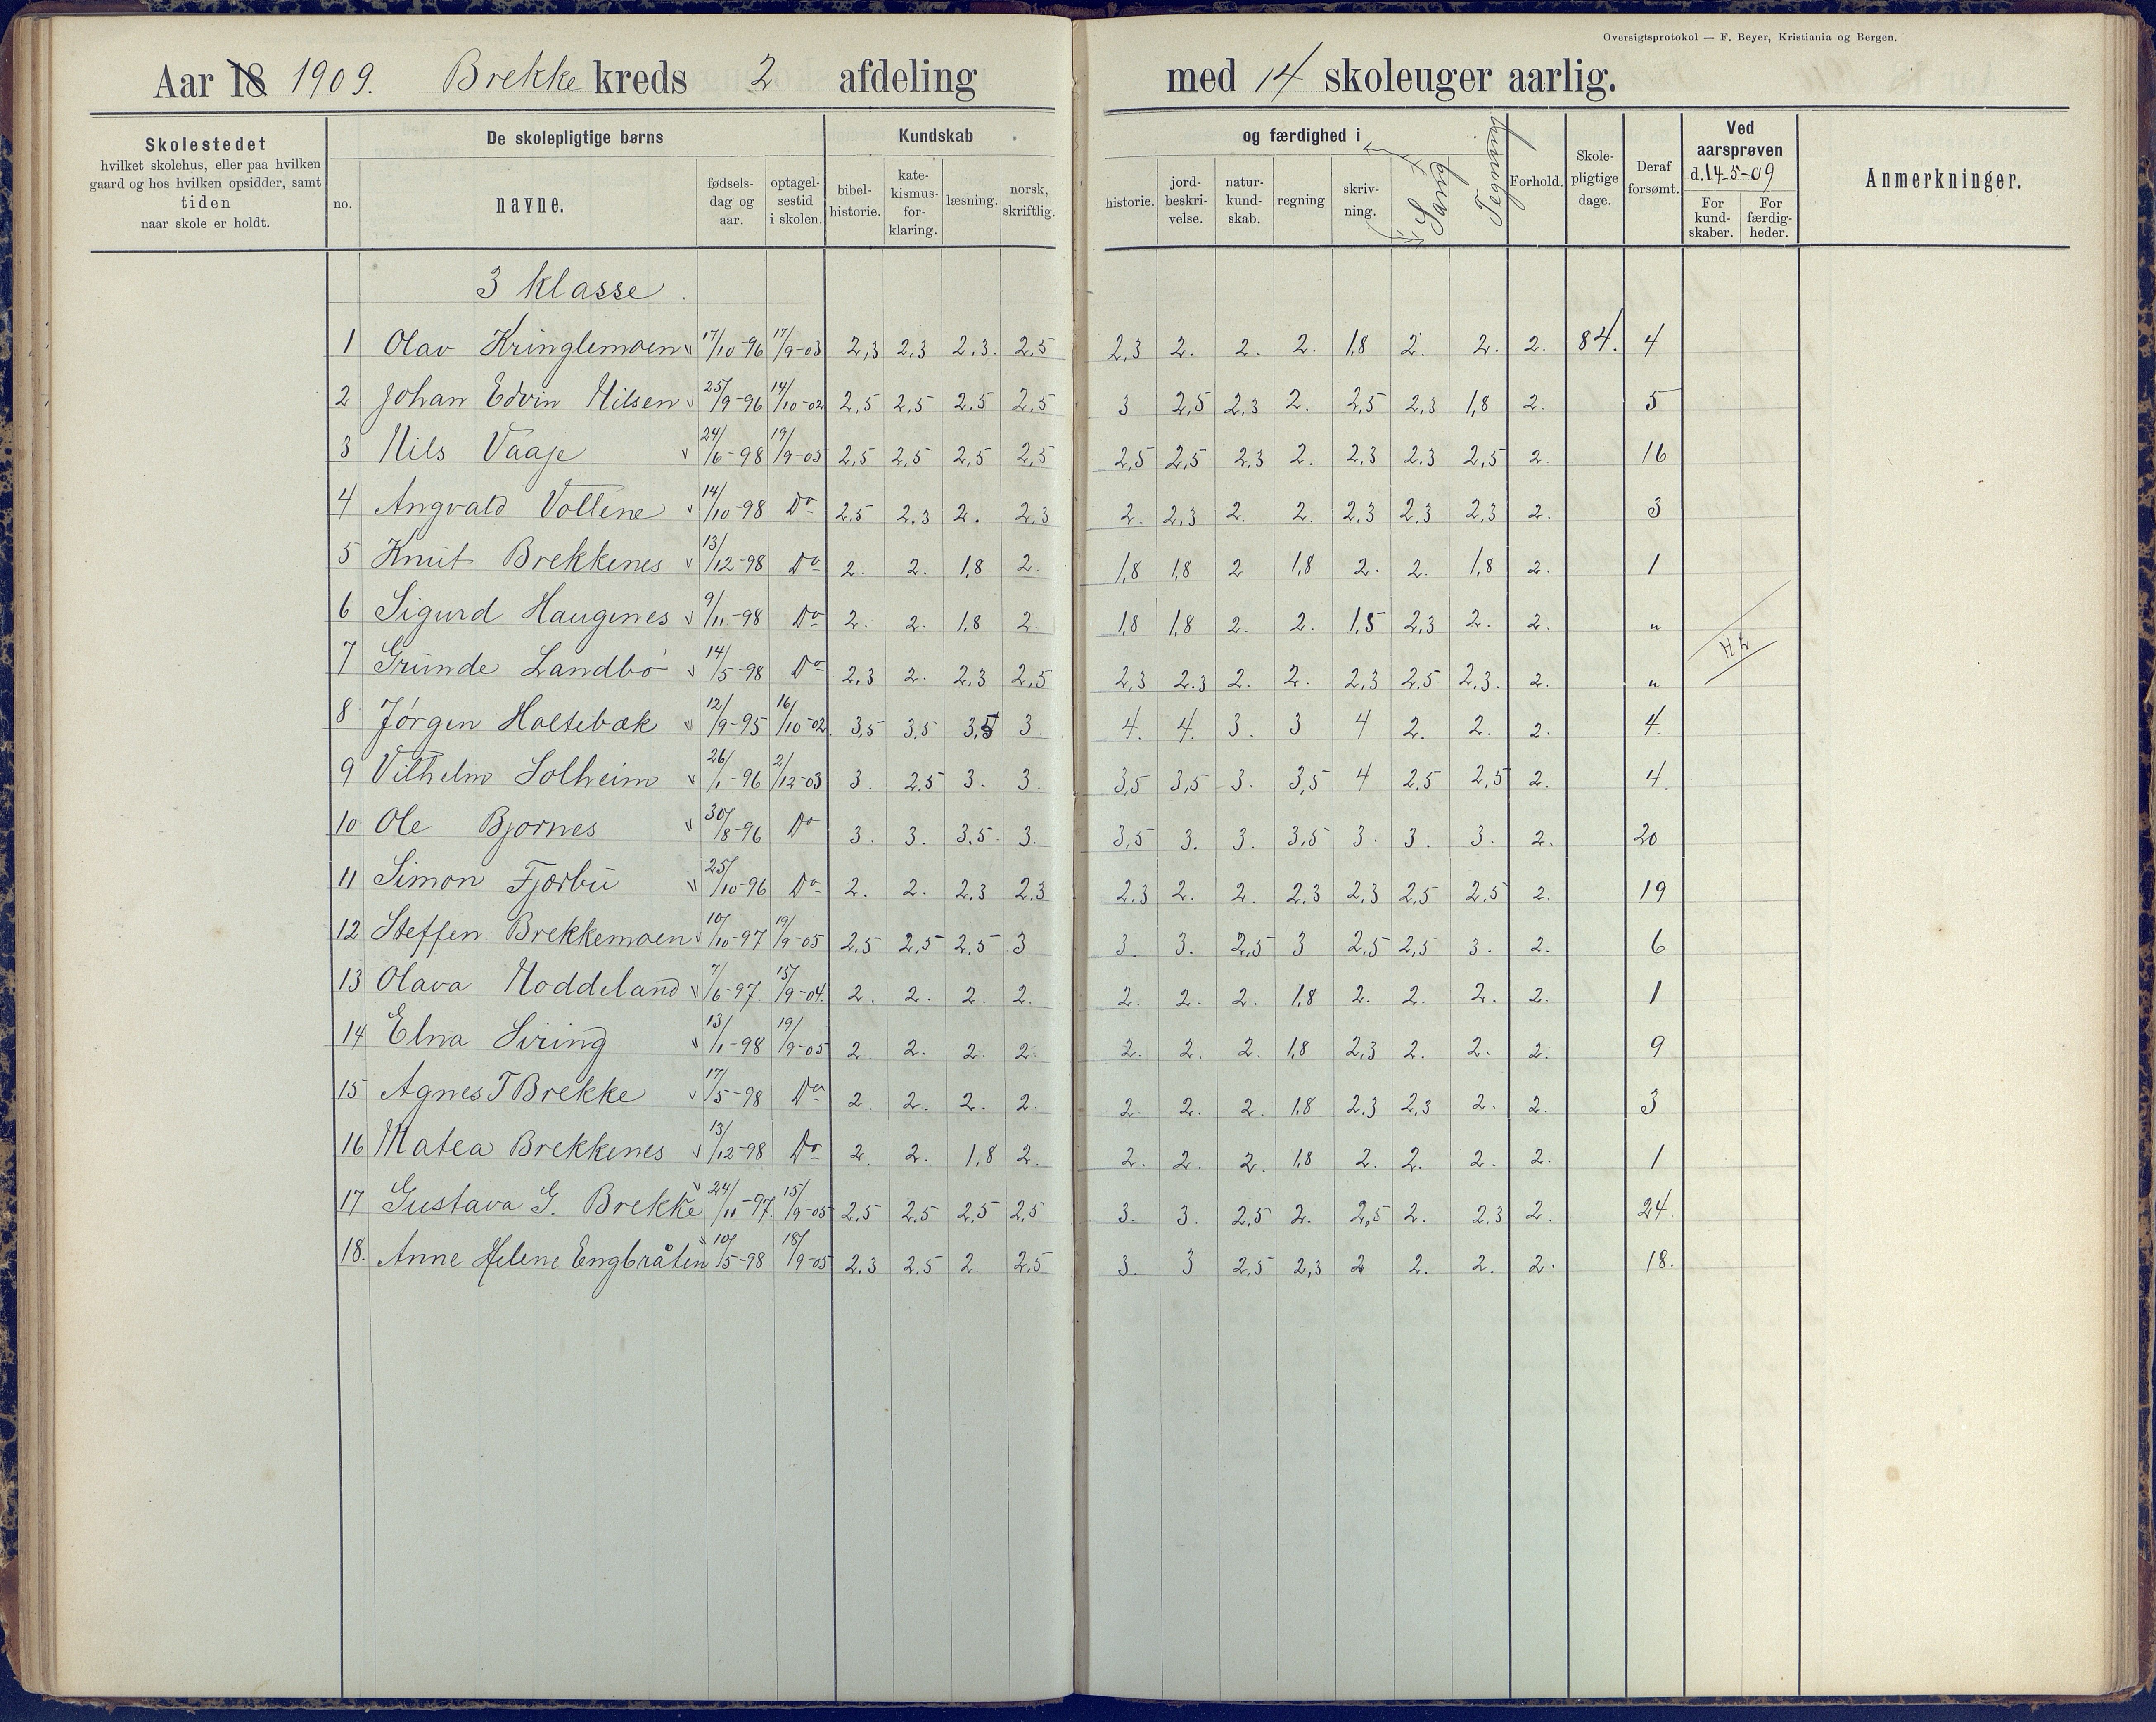 Oversigtsprotokol — F. Beyer, Kristiania og Bergen.
Aar 18 1909. Brekke kreds 2 afdeling med 14 skoleuger aarlig.
Skolestedet
hvilket skolehus, eller paa hvilken
gaard og hos hvilken opsidder, samt
tiden
naar skole er holdt.
De skolepligtige børns
no.
navne.
fødsels-
dag og
aar.
optagel-
sestid
i skolen.
Kundskab
bibel-
historie.
kate-
kismus-
for-
klaring.
læsning.
norsk,
skriftlig.
og færdighed i
historie.
jord-
beskri-
velse.
natur-
kund-
skab.
regning
skriv-
ning.
Sang
Tegning
Forhold.
Skole-
pligtige
dage.
Deraf
forsømt.
Ved
aarsprøven
d. 14-5-09
For
kund-
skaber.
For
færdig-
heder.
Anmerkninger.
3 klasse.
1 Olav Kringlemoen 17/10-96 17/9-03 2,3 2,3 2,3. 2,5 2,3 2. 2. 2. 1,8 2. 2. 2. 84. 4
2 Johan Edvin Nilsen 25/9-96 14/10-02 2,5 2,5 2,5 2,5 3 2,5 2,3 2. 2,5 2,3 1,8 2. 5
3 Nils Vaaje 24/6-98 19/9-05 2,5 2,5 2,5 2,5 2,5 2,5 2,3 2. 2,3 2,3 2,5 2. 16
4 Angvald Vollene 14/10-98 Do 2,5 2,3 2. 2,3 2. 2,3 2. 2. 2,3 2,3 2,3 2. 3
5 Knut Brekkenes 13/12-98 Do 2. 2. 1,8 2. 1,8 1,8 2 1,8 2. 2. 1,8 2. 1
6 Sigurd Haugenes 9/11-98 Do 2. 2. 1,8 2. 1,8 1,8 2. 2. 1,5 2,3 2. 2. "
7 Grunde Landbø 14/5-98 Do 2,3 2. 2,3 2,5 2,3 2,3 2. 2. 2,3 2,5 2,3. 2. "
8 Jørgen Holtebæk 12/9-95 16/10-02 3,5 3,5 3,5 3. 4. 4. 3. 3 4 2. 2. 2. 4.
9 Vilhelm Solheim 26/1-96 2/12-03 3. 2,5 3. 3. 3,5 3,5 3. 3,5 4 2,5 2,5 2. 4.
10 Ole Bjornes 30/8-96 Do 3. 3. 3,5. 3. 3,5 3. 3. 3,5 3. 3. 3. 2. 20
11 Simon Fjærbu 25/10-96 Do 2. 2. 2,3 2,3 2,3 2. 2. 2,3 2,3 2,5 2,5 2. 19
12 Steffen Brekkemoen 10/10-97 19/9-05 2,5 2,5 2,5 3 3. 3. 2,5 3 2,5 2,5 3. 2. 6
13 Olava Hoddeland 7/6-97. 15/9-04. 2. 2. 2. 2. 2. 2. 2. 1,8 2. 2. 2. 2. 1
14 Elna Siring 13/1-98 19/9-05 2. 2. 2. 2. 2. 2. 2. 1,8 2,3 2. 2. 2. 9
15 Agnes T Brekke 17/5-98 Do 2. 2. 2. 2. 2. 2. 2. 1,8 2,3 2,3 2. 2. 3
16 Matea Brekkenes 13/12-98 Do 2. 2. 1,8 2. 2. 2. 2. 1,8 2. 2. 2. 2. 1
17 Gustava G. Brekke 24/11-97. 15/9-05 2,5 2,5 2,5 2,5 3. 3. 2,5 2. 2,5 2. 2,3 2. 24
18. Anne Helene Engbråten 10/5-98 18/9-05 2,3 2,5 2. 2,5 3. 3 2,5 2,3 2 2. 2. 2. 18.